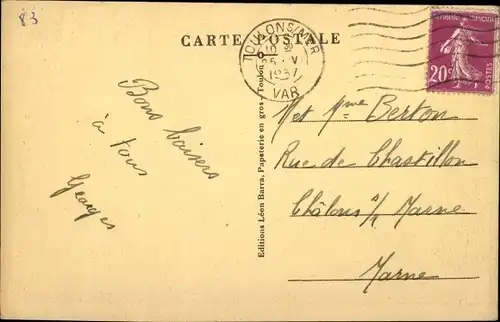 83
CARTE POSTALE
TOULON S/MER
10
5 · V
1937
VAR
RÉPUBLIQUE FRANÇAISE
20c
POSTES
Bons baisers
à tous
Georges
Editions Léon Barra, Papeterie en gros - Toulon
M et Mme Berton
Rue de Chastillon
Châlons s/ Marne
Marne